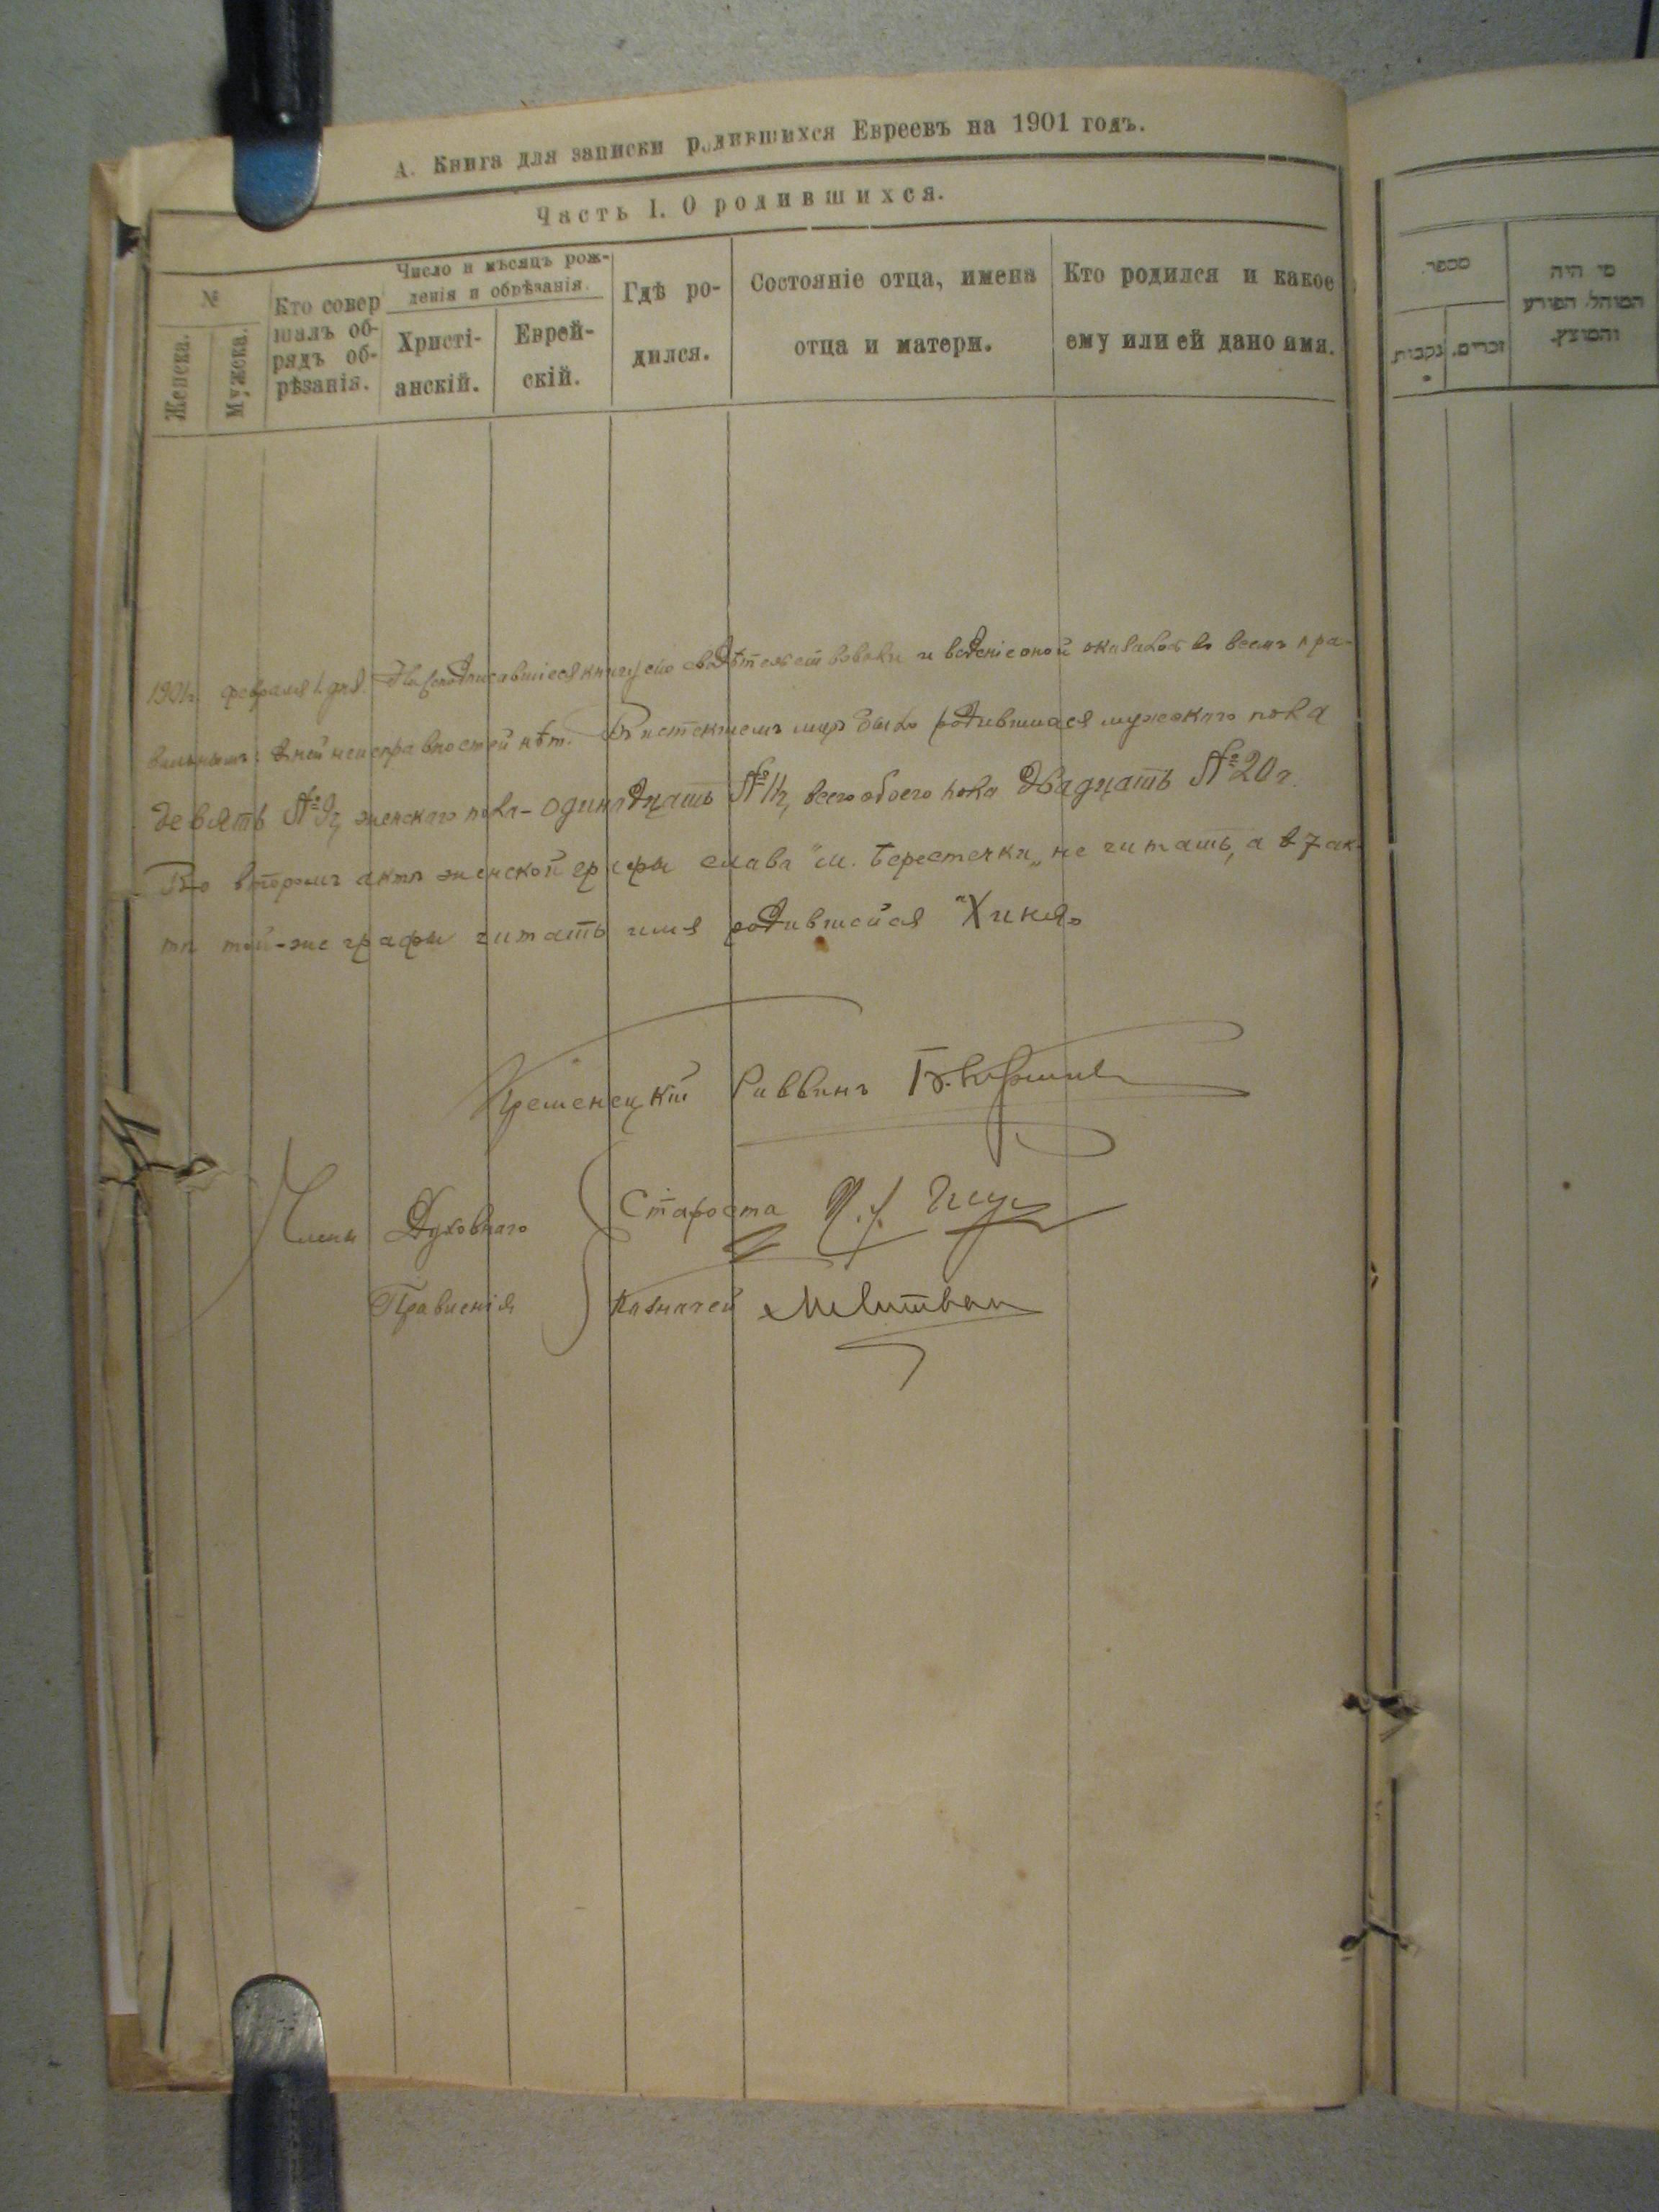 А. Книга для записки родившихся Евреевъ на 1901 годъ.
Часть I. О родившихся.
№
Женска.
Мужска.
Кто совер
шалъ об-
рядъ об-
рѣзанія.
Число и мѣсяцъ рож-
денія и обрѣзанія.
Христі-
анскій.
Еврей-
скій.
Гдѣ ро-
дился.
Состояніе отца, имена
отца и матери.
Кто родился и какое
ему или ей дано имя.
1901 г. февраля 1 дня. книгу сію свидѣтельствовали и веденіе оной оказалось во всемъ пра-
вильнымъ: в ней неисправностей нѣт. В истекшемъ было родившихся мужскаго пола
девять № 9, женскаго пола - одинадцать № 11, всего обоего пола двадцать № 20 г.
Во второмъ актѣ женской графы слава "м. Берестечки„ не читать, а в 7 ак-
тѣ той-же графы читать имя родившейся "Хиня„
Кременецкій Раввинъ
Члены Духовнаго
Правленія
Староста
Казначей М Литвак
מספר.
נקבות.
זכרים.
מי היה
המוהל, הפורע
והמוצץ.